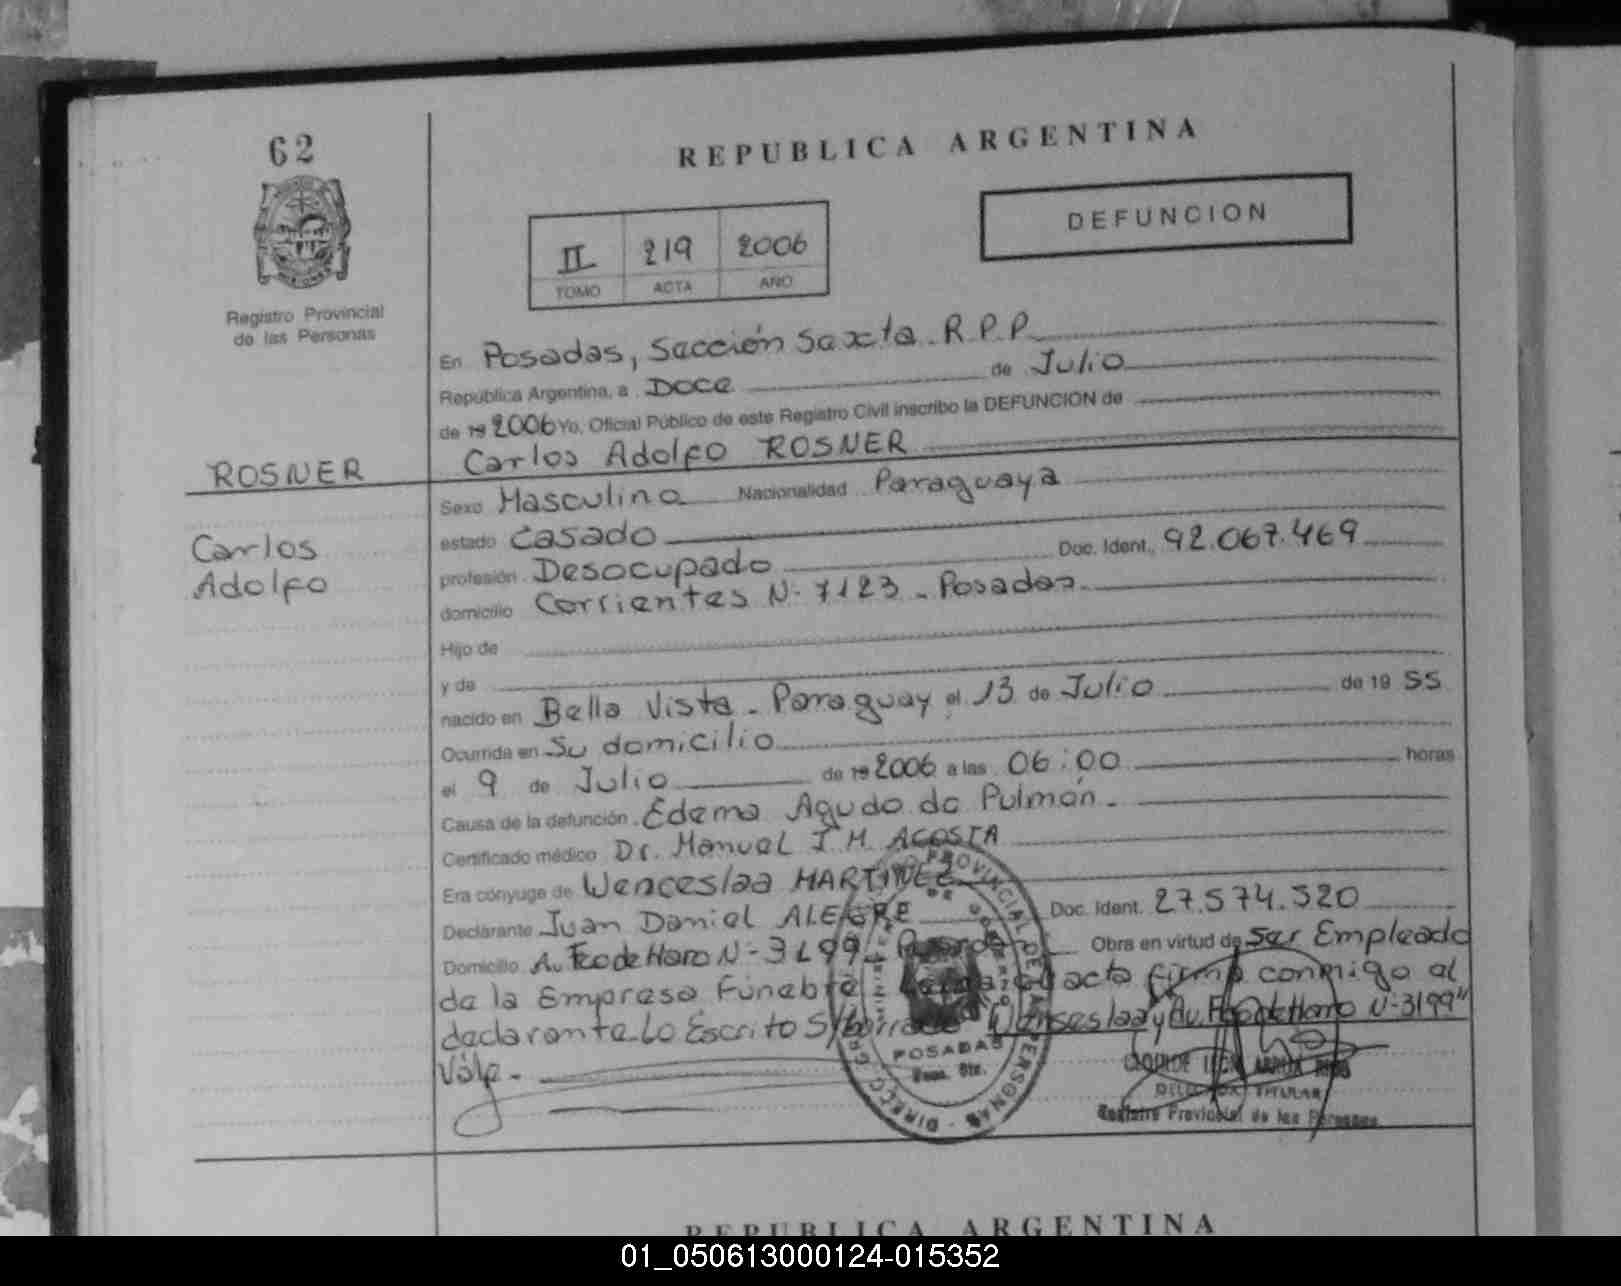 62
REPUBLICA ARGENTINA
DEFUNCION
II 219 2006
TOMO ACTA AÑO
Registro Provincial
de las Personas
En Posadas, Sección Sexta. R.P.P.
República Argentina, a Doce de Julio
de 19 2006 Yo, Oficial Público de este Registro Civil inscribo la DEFUNCION de
Carlos Adolfo ROSNER
ROSNER
Carlos
Adolfo
Sexo Masculino Nacionalidad Paraguaya
estado Casado
profesión Desocupado Doc. Ident. 92.067.469
domicilio Corrientes N- 7123 - Posadas
Hijo de
y de
nacido en Bella Vista - Paraguay el 13 de Julio de 19 55
Ocurrida en Su domicilio
el 9 de Julio de 19 2006 a las 06:00 horas
Causa de la defunción Edema Agudo de Pulmón.-
Certificado médico Dr. Manuel I.M. ACOSTA
Era cónyuge de Wenceslaa MARTINEZ
Declarante Juan Daniel ALEGRE Doc. Ident. 27.574.520
Domicilio Av. Fco de Haro N- 3199 - Obra en virtud de Ser Empleado
de la Empresa Funebre acta firma conmigo el
declarante Lo Escrito S/borrado "Wenseslaa y Av. Fco de Haro N-3199"
Vale.-
DIRECC. PROVINCIAL DE PERSONAS
POSADAS
TITULAR
Registro Provincial de las Personas
REPUBLICA ARGENTINA
01_050613000124-015352